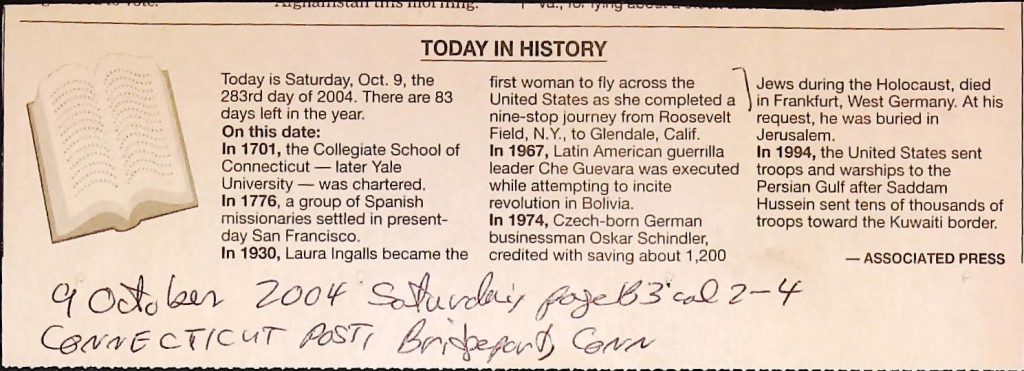 Afghanistan this morning.
TODAY IN HISTORY
Today is Saturday, Oct. 9, the
283rd day of 2004. There are 83
days left in the year.
On this date:
In 1701, the Collegiate School of
Connecticut — later Yale
University — was chartered.
In 1776, a group of Spanish
missionaries settled in present-
day San Francisco.
In 1930, Laura Ingalls became the
first woman to fly across the
United States as she completed a
nine-stop journey from Roosevelt
Field, N.Y., to Glendale, Calif.
In 1967, Latin American guerrilla
leader Che Guevara was executed
while attempting to incite
revolution in Bolivia.
In 1974, Czech-born German
businessman Oskar Schindler,
credited with saving about 1,200
Jews during the Holocaust, died
in Frankfurt, West Germany. At his
request, he was buried in
Jerusalem.
In 1994, the United States sent
troops and warships to the
Persian Gulf after Saddam
Hussein sent tens of thousands of
troops toward the Kuwaiti border.
— ASSOCIATED PRESS
9 October 2004 Saturday page B3 col 2-4
CONNECTICUT POST, Bridgeport, Conn